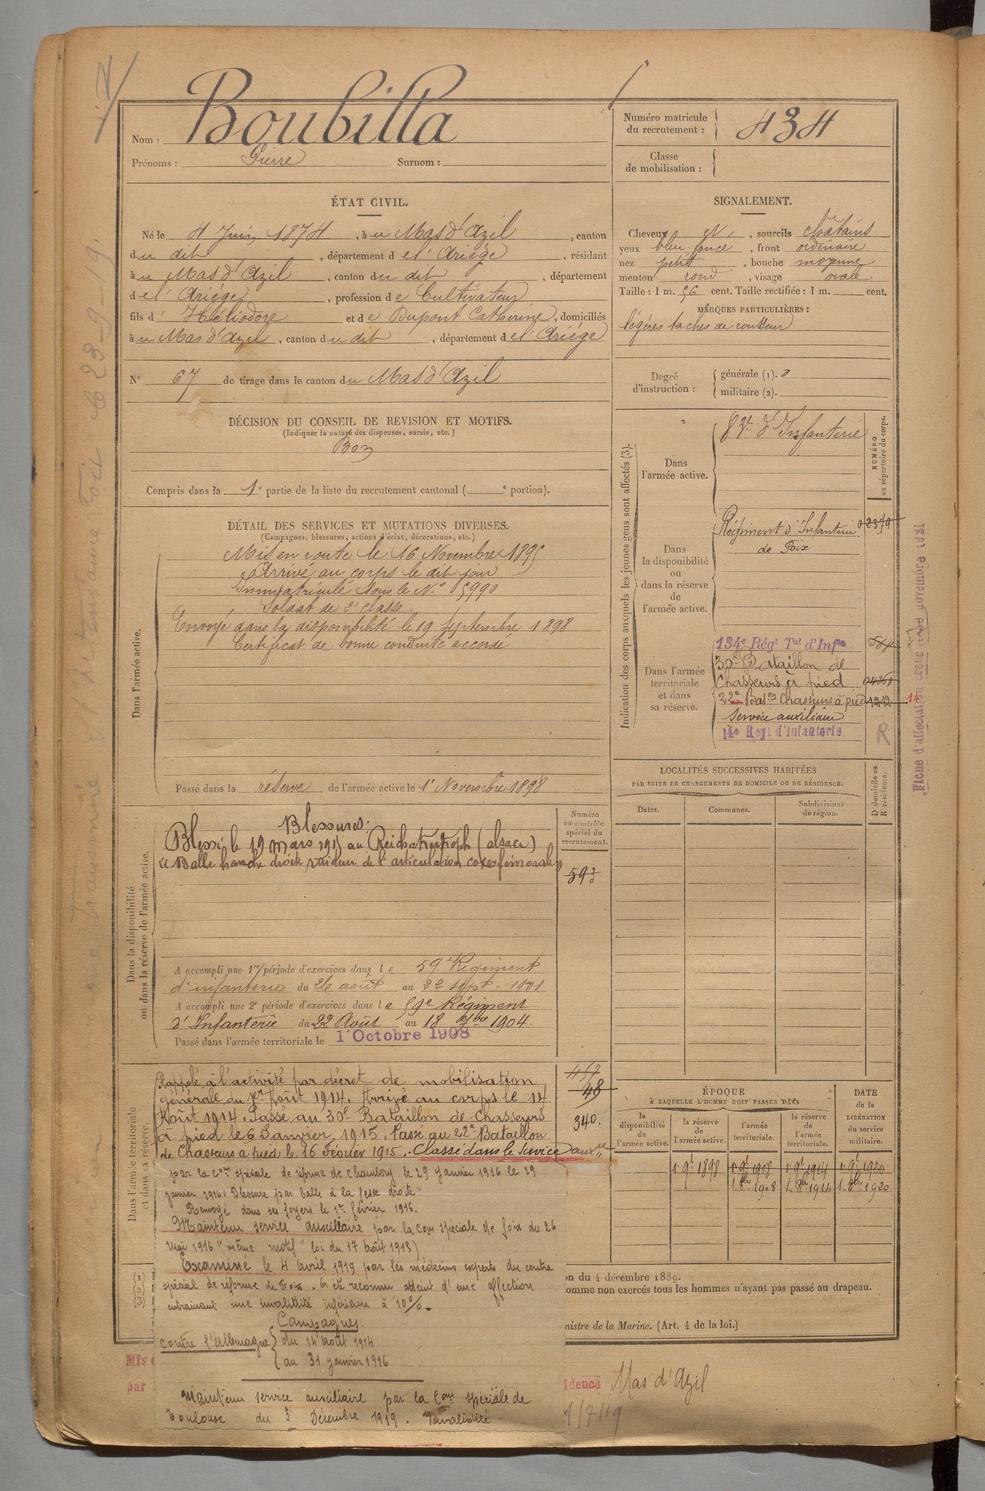 Nom : Boubilla
Prénoms : Pierre Surnom :
Numéro matricule du recrutement : 434
Classe de mobilisation :
ÉTAT CIVIL.
Né le 4 Juin 1874, à u Mas d'Azil, canton
du dit, département de l'Ariège, résidant
à u Mas d'Azil, canton du dit, département
de l'Ariège, profession de Cultivateur
fils d' Héliodore et de Dupont Catherine, domiciliés
à u Mas d'Azil, canton du dit, département de l'Ariège
N° 67 de tirage dans le canton du Mas d'Azil
SIGNALEMENT.
Cheveux , sourcils châtains
yeux bleu foncé, front ordinaire
nez petit, bouche moyenne
menton rond, visage ovale
Taille : 1 m. 56 cent. Taille rectifiée : 1 m. cent.
MARQUES PARTICULIÈRES :
légères taches de rousseur
Degré d'instruction : générale (1). 2
militaire (2).
DÉCISION DU CONSEIL DE REVISION ET MOTIFS.
(Indiquer la nature des dispenses, sursis, etc.)
Bon
Compris dans la 1e partie de la liste du recrutement cantonal ( e portion).
DÉTAIL DES SERVICES ET MUTATIONS DIVERSES.
(Campagnes, blessures, actions d'éclat, décorations, etc.)
Dans l'armée active.
Mis en route le 16 Novembre 1895
Arrivé au corps le dit jour
Immatriculé sous le N° 15990
Soldat de 2e classe
Envoyé dans la disponibilité le 19 Septembre 1898
Certificat de bonne conduite accordé
Passé dans la réserve de l'armée active le 1er Novembre 1898
Indication des corps auxquels les jeunes gens sont affectés (3).
NUMÉRO au répertoire du corps.
Dans l'armée active.
83e d'Infanterie
Dans la disponibilité ou dans la réserve de l'armée active.
Régiment d'Infanterie
de Foix
Dans l'armée territoriale et dans sa réserve.
134e Régt Tal d'Infie
30e Bataillon de
Chasseurs à pied
22e Baton Chasseurs à pied
Service auxiliaire
14e Regt d'Infanterie
R
LOCALITÉS SUCCESSIVES HABITÉES
PAR SUITE DE CHANGEMENTS DE DOMICILE OU DE RÉSIDENCE.
Dates. Communes. Subdivisions de région.
D domicile ou R résidence.
Dans la disponibilité ou dans la réserve de l'armée active.
Numéro au contrôle spécial du recrutement.
Blessures:
Blessé le 19 mars 1915 au Reichackerkopf (alsace)
Balle hanche droite raideur de l'articulation coxo fémorale
593
A accompli une 1re période d'exercices dans le 59e Régiment
d'infanterie du 26 août au 22 sept. 1901
A accompli une 2e période d'exercices dans le 59e Régiment
d'Infanterie du 22 Août au 18 7bre 1904.
Passé dans l'armée territoriale le 1 Octobre 1908
Dans l'armée territoriale et dans sa réserve.
Rappelé à l'activité par décret de mobilisation
générale du 1er août 1914. Arrivé au corps le 14
Août 1914. Passé au 30e Bataillon de Chasseurs
à pied le 6 Janvier 1915. Passé au 22e Bataillon
de Chasseurs à pied le 16 Février 1915. Classé dans le service auxre
par la Con spéciale de réforme de Chambéry le 29 janvier 1916 le 29
janvier 1916. Blessure par balle à la fesse droite"
Renvoyé dans ses foyers le 1er février 1916.
Maintenu service auxiliaire par la Con spéciale de foix du 26
mai 1916 "même motif" loi du 17 août 1915)
Examiné le 4 avril 1919 par les médecins experts du centre
spécial de réforme de Foix. A été reconnu atteint d'une affection
entraînant une invalidité inférieure à 10%.
Campagnes.
Contre l'Allemagne du 14 août 1914
au 31 janvier 1916
Maintenu service auxiliaire par la Con spéciale de
Toulouse du 3 Décembre 1919. Invalidité
48
340.
ÉPOQUE
À LAQUELLE L'HOMME DOIT PASSER DANS
la disponibilité de l'armée active.
la réserve de l'armée active.
l'armée territoriale.
la réserve de l'armée territoriale.
DATE de la LIBÉRATION du service militaire.
on du 4 décembre 1889.
omme non exercés tous les hommes n'ayant pas passé au drapeau.
nistre de la Marine. (Art. 4 de la loi.)
idence Mas d'Azil
1/7/19